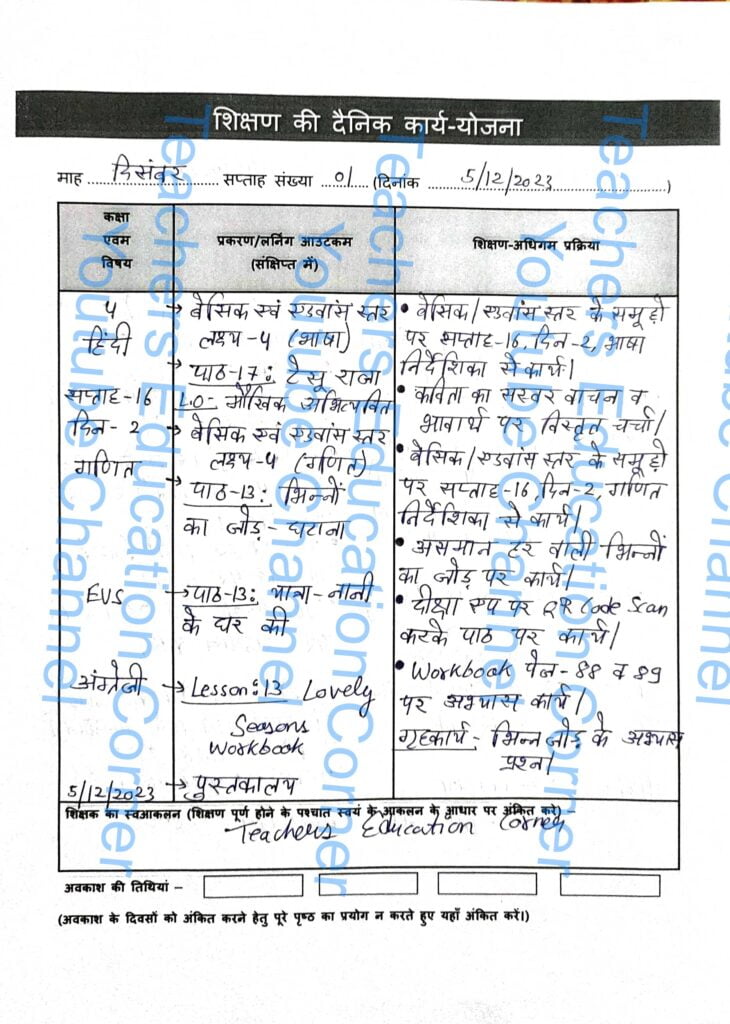 शिक्षण की दैनिक कार्य-योजना
माह दिसंबर सप्ताह संख्या 01 (दिनांक 5/12/2023)
कक्षा
एवम
विषय
प्रकरण/लर्निंग आउटकम
(संक्षिप्त में)
शिक्षण-अधिगम प्रक्रिया
5
हिंदी
सप्ताह-16
दिन-2
गणित
EVS
अंग्रेजी
5/12/2023
→ बेसिक एवं एडवांस स्तर
लक्ष्य-5 (भाषा)
→ पाठ-17: टेसू राजा
L.O- मौखिक अभिव्यक्ति
→ बेसिक एवं एडवांस स्तर
लक्ष्य-5 (गणित)
→ पाठ-13: भिन्नों
का जोड़-घटाना
→ पाठ-13: यात्रा-नानी
के घर की
→ Lesson:13 Lovely
Seasons
Workbook
→ पुस्तकालय
• बेसिक/एडवांस स्तर के समूहों
पर सप्ताह-16, दिन-2, भाषा
निर्देशिका से कार्य।
• कविता का सस्वर वाचन व
भावार्थ पर विस्तृत चर्चा।
• बेसिक/एडवांस स्तर के समूहों
पर सप्ताह-16, दिन-2, गणित
निर्देशिका से कार्य।
• असमान हर वाली भिन्नों
का जोड़ पर कार्य।
• दीक्षा एप पर QR Code Scan
करके पाठ पर कार्य।
• Workbook पेज-88 व 89
पर अभ्यास कार्य।
गृहकार्य- भिन्न जोड़ के अभ्यास
प्रश्न।
शिक्षक का स्वआकलन (शिक्षण पूर्ण होने के पश्चात स्वयं के आकलन के आधार पर अंकित करे) –
Teachers Education Corner
अवकाश की तिथियां –
(अवकाश के दिवसों को अंकित करने हेतु पूरे पृष्ठ का प्रयोग न करते हुए यहाँ अंकित करें।)
Teachers Education Corner
Youtube Channel
Teachers Education Corner
Youtube Channel
Teachers Education Corner
Youtube Channel